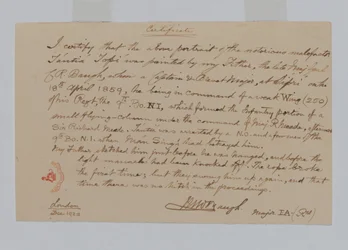 Certificate
I certify that the above portrait of the notorious malefactor
Tantia Topi was painted by my Father, the late Maj. Genl
Baugh, when a Captain & Brevet Major, at Sipri
18th April 1859, he being in command of a weak Wing (250)
of his Regt, the 9th Bo. N.I., which formed the Infantry portion of a
small flying column under the command of Maj. R. Meade, afterwards
Sir Richard Meade. Tantia was arrested by a N.O. and a few men of the
9th Bo. N.I. when Maun Singh had betrayed him.
My Father sketched him just before he was hanged, and before the
light manacles had been knocked off. The rope broke
the first time, but they strung him up again, and that
time there was no hitch in the proceedings.
Baugh
Major I.A. (Rtd)
London
Dec.